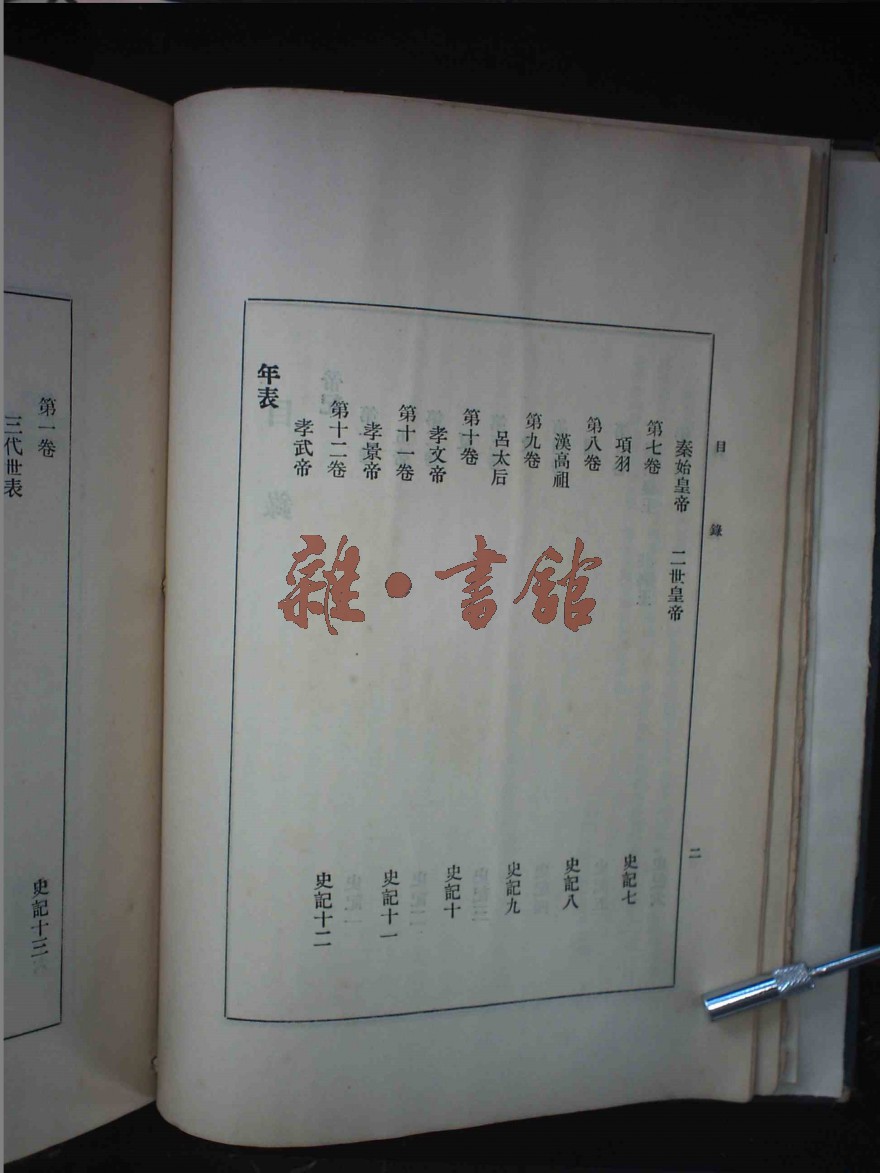 目錄
二
秦始皇帝 二世皇帝
第七卷
項羽
史記七
第八卷
漢高祖
史記八
第九卷
呂太后
史記九
第十卷
孝文帝
史記十
第十一卷
孝景帝
史記十一
第十二卷
孝武帝
史記十二
年表
第一卷
三代世表
史記十三
雜·書館